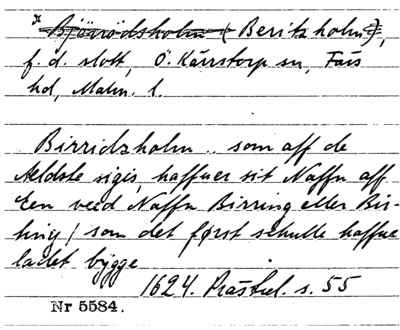 * Björrödsholm (Beritzholm),
f. d. slott, Ö. Kärrstorp sn, Färs
hd, Malm. l.
Birridzholm .. som aff de
Aeldste sigis, haffuer sit Naffn aff
Een veed Naffn Birring eller Bir-
ling / som det først schulle haffue
ladet bygge
1624. Prästrel. s. 55
Nr 5584.